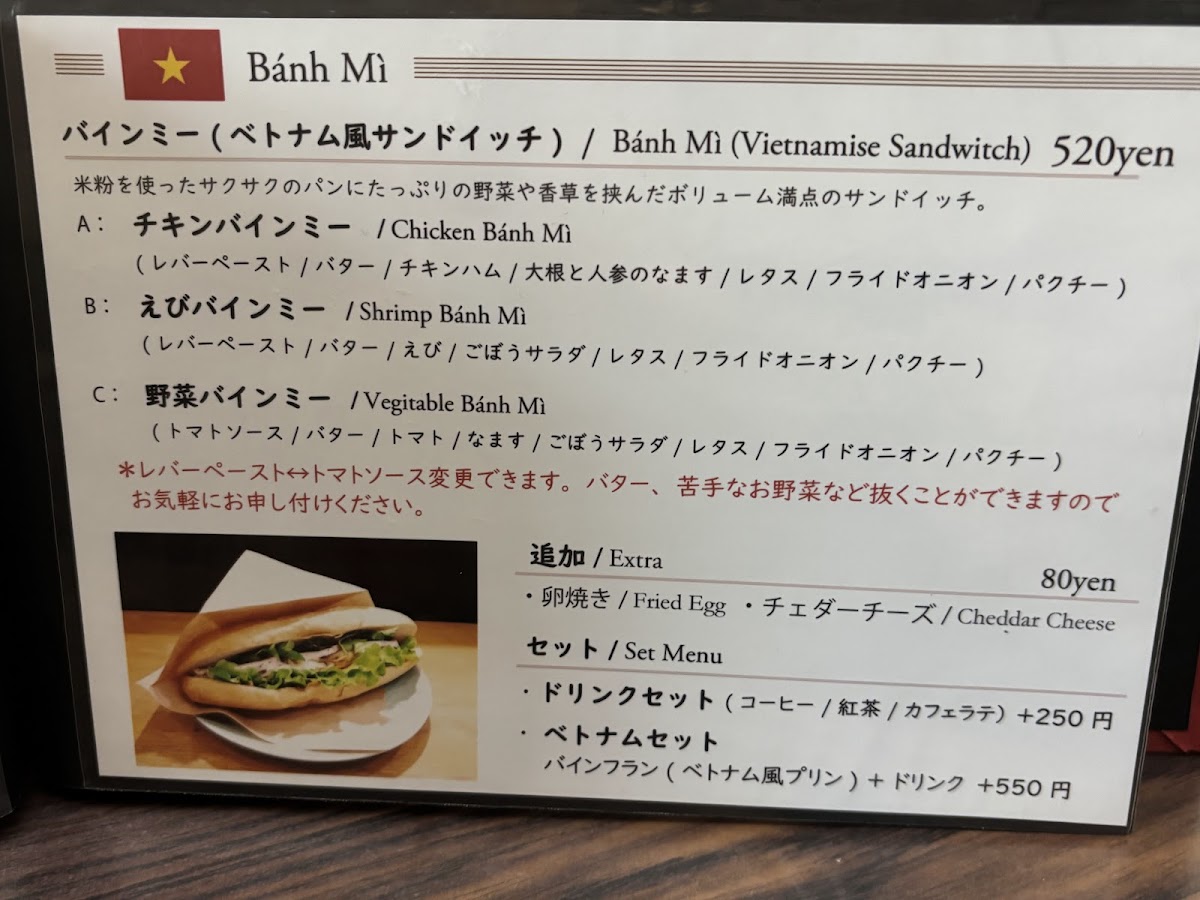 Bánh Mì
バインミー ( ベトナム風サンドイッチ ) / Bánh Mì (Vietnamise Sandwitch) 520yen
米粉を使ったサクサクのパンにたっぷりの野菜や香草を挟んだボリューム満点のサンドイッチ。
A： チキンバインミー / Chicken Bánh Mì
( レバーペースト / バター / チキンハム / 大根と人参のなます / レタス / フライドオニオン / パクチー )
B： えびバインミー / Shrimp Bánh Mì
( レバーペースト / バター / えび / ごぼうサラダ / レタス / フライドオニオン / パクチー )
C： 野菜バインミー / Vegitable Bánh Mì
( トマトソース / バター / トマト / なます / ごぼうサラダ / レタス / フライドオニオン / パクチー )
＊レバーペースト↔トマトソース変更できます。バター、苦手なお野菜など抜くことができますので
お気軽にお申し付けください。
追加 / Extra
80yen
・卵焼き / Fried Egg ・チェダーチーズ / Cheddar Cheese
セット / Set Menu
・ドリンクセット ( コーヒー / 紅茶 / カフェラテ） +250 円
・ベトナムセット
バインフラン ( ベトナム風プリン ) + ドリンク +550 円